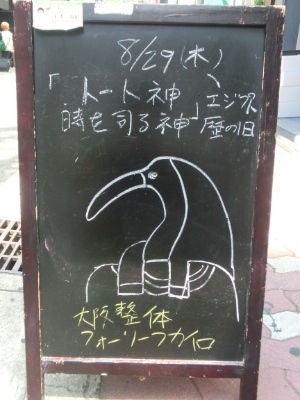 8/29(木)
「トート神、エジプト
時を司る神」暦の1日
大阪整体
フォーリーフカイロ